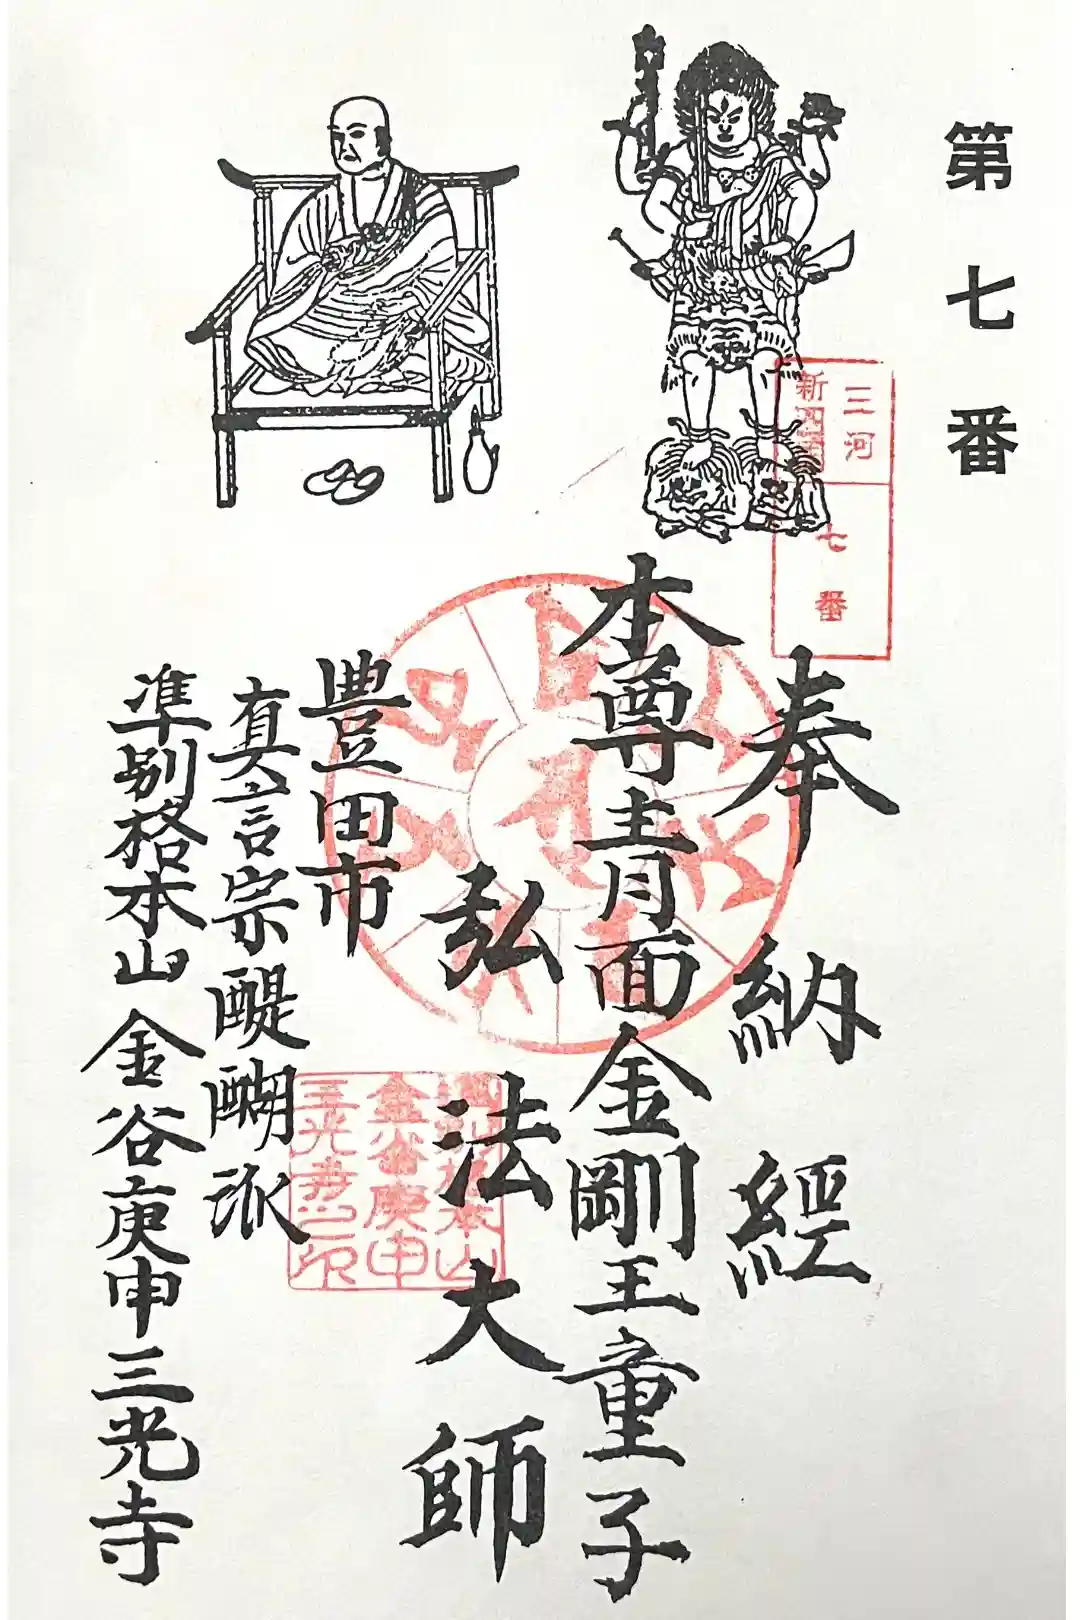 第七番
三河
新四国
七番
奉納經
本尊青面金剛王童子
弘法大師
豊田市
真言宗醍醐派
準別格本山金谷庚申三光寺
金谷庚申
三光寺之印